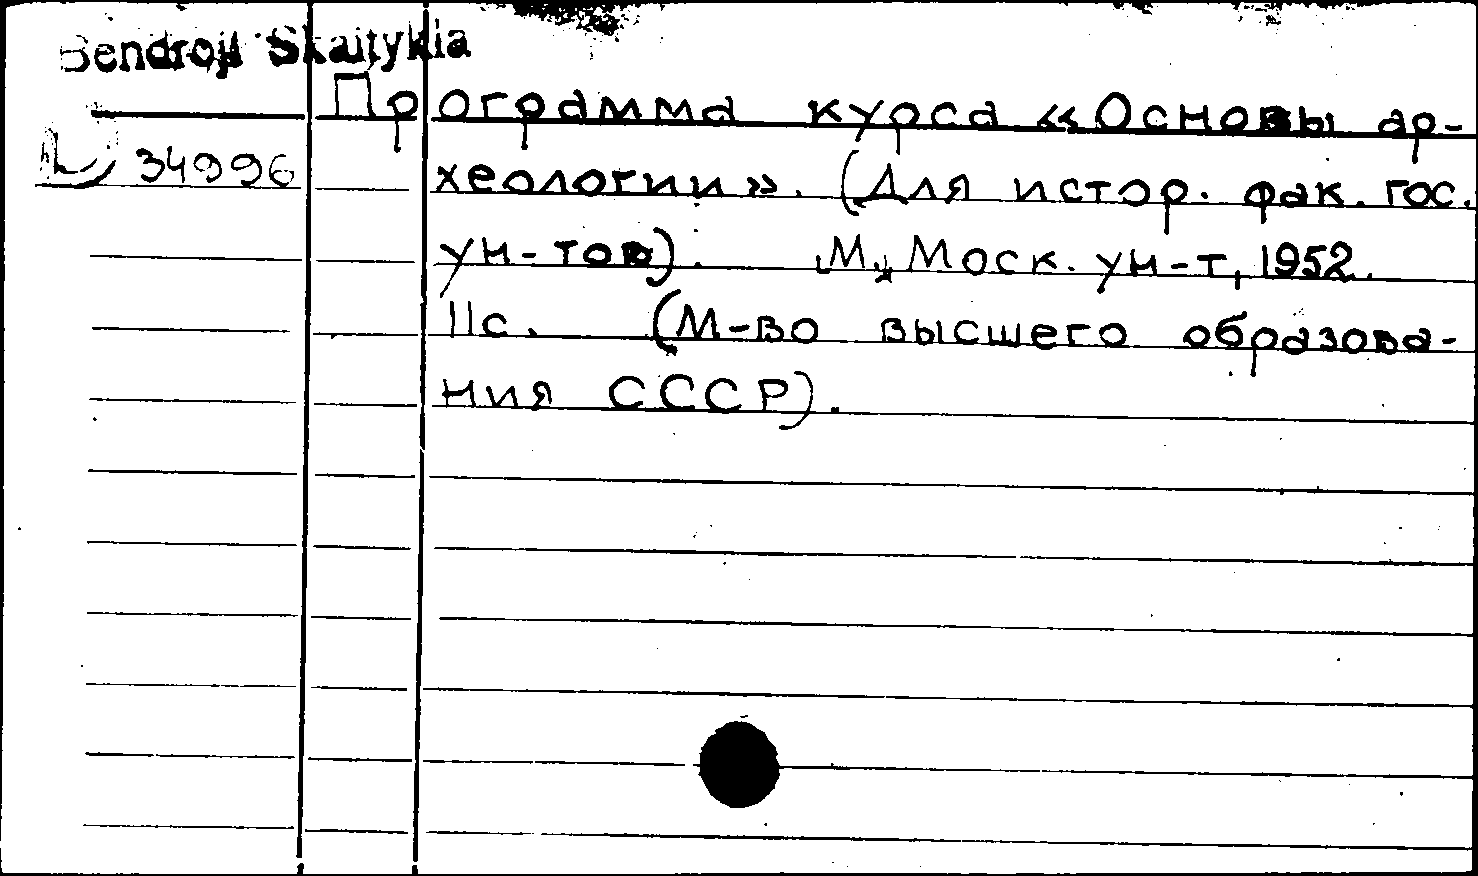 Bendroji Skaitykla
Программа курса «Основы ар-
L 34996
хеологии». (Для истор. фак. гос.
ун-тов). М., Моск. ун-т, 1952.
11с. (М-во высшего образова-
ния СССР).